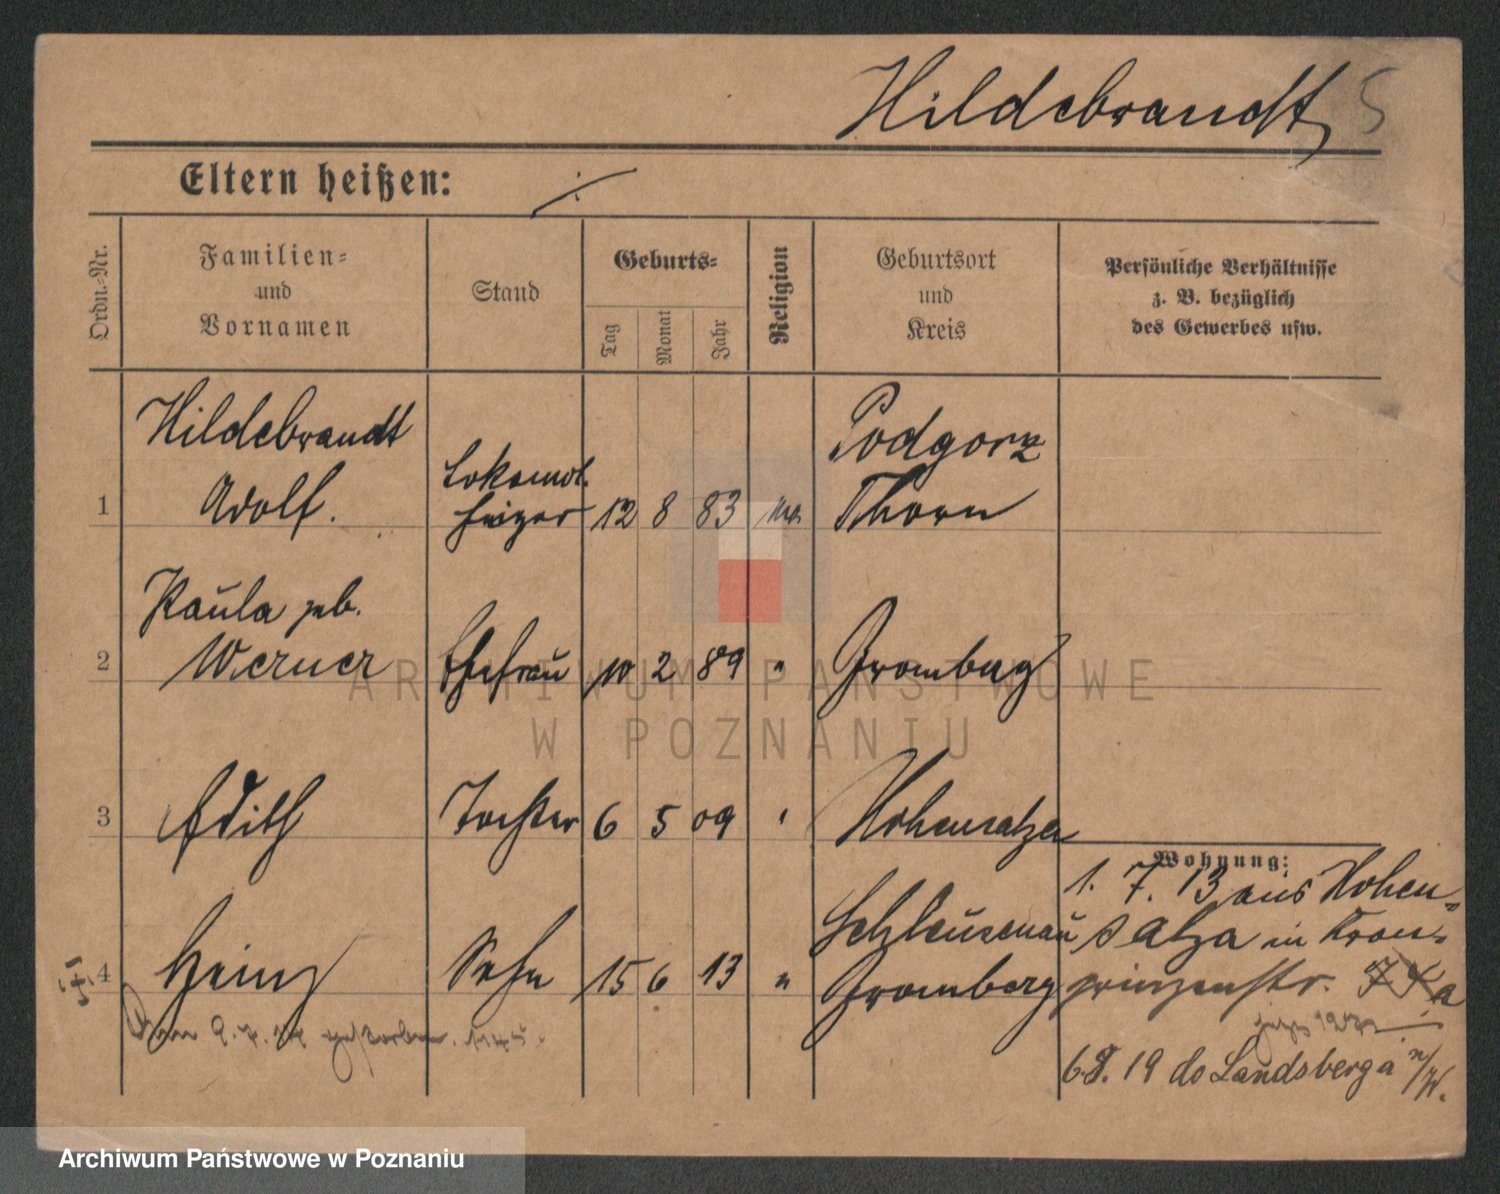 Hildebrandt 5
Eltern heißen: ·/·
Ordn.-Nr.
Familien-
und
Vornamen
Stand
Geburts-
Tag
Monat
Jahr
Religion
Geburtsort
und
Kreis
Persönliche Verhältnisse
z. B. bezüglich
des Gewerbes usw.
Hildebrandt Lokomot. Podgorz
1 Adolf. heizer 12 8 83 Thorn
Paula geb.
2 Werner Ehefrau 10 2 89 " Bromberg
3 Edith Tochter 6 5 09 " Hohensalza
Wohnung:
1. 7. 13 aus Hohen-
Schleusenau salza in Kron-
4 Heinz Sohn 15 6 13 " Bromberg prinzenstr. a
am 9. 7. gestorben.
6.8.19 do Landsberg a/W.
ARCHIWUM PAŃSTWOWE
W POZNANIU
Archiwum Państwowe w Poznaniu